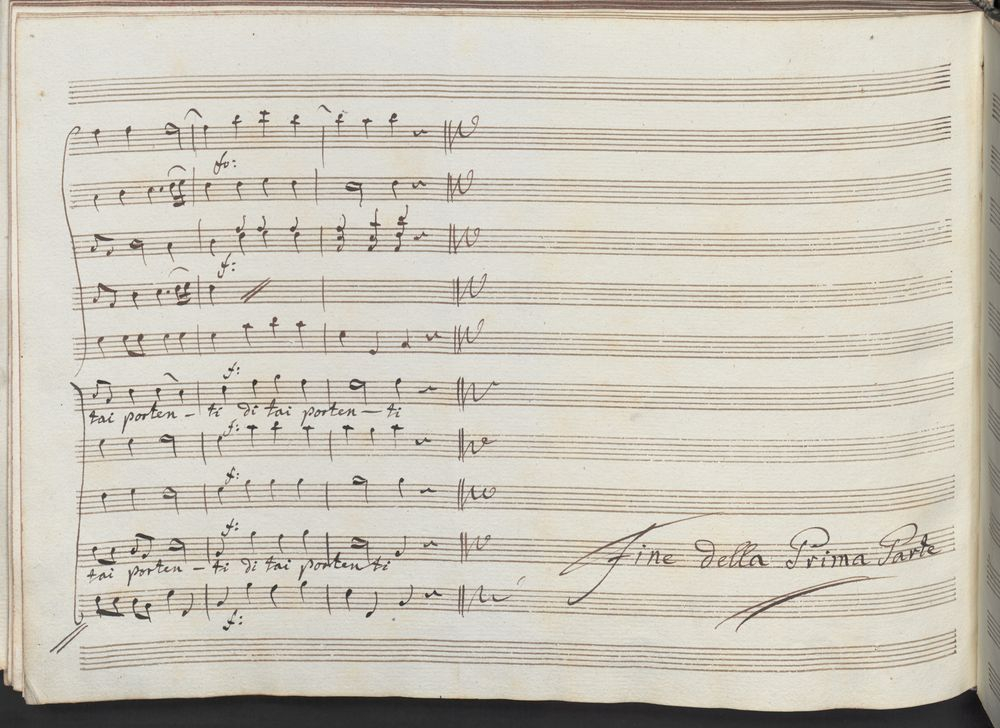 fo:
f:
f:
tai porten - ti di tai porten - ti
f:
f:
f:
Fine della Prima Parte
tai porten - ti di tai portenti
f: